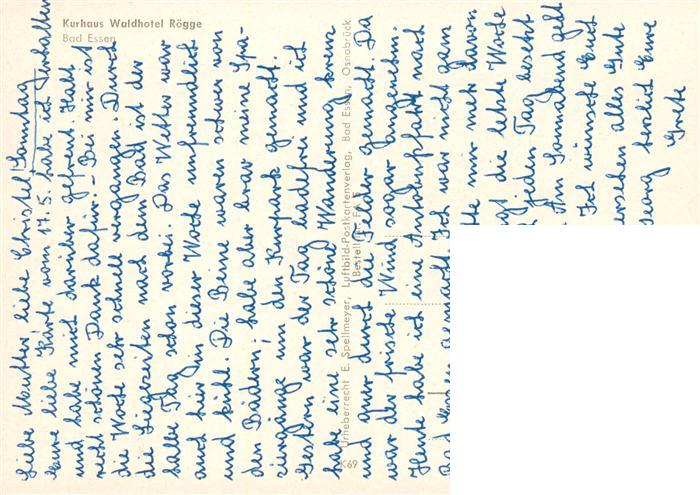 Kurhaus Waldhotel Rögge
Bad Essen
Sonntag
Liebe Mutter liebe Christel!
Eure liebe Karte vom 17.5. habe ich erhalten
und habe mich darüber gefreut. Habt
recht schönen Dank dafür. - Bei mir ist
die Woche sehr schnell vergangen. Durch
die Liegezeiten nach dem Bad ist der
halbe Tag schon vorbei. Das Wetter war
auch hier in dieser Woche unfreundlich
und kühl. Die Beine waren schwer von
den Bädern; habe aber brav meine Spa-
ziergänge um den Kurpark gemacht.
Gestern war der Tag badefrei und ich
habe eine sehr schöne Wanderung kreuz
und quer durch die Felder gemacht. Da
war der frische Wind sogar angenehm.
Heute habe ich eine Autobusfahrt nach
Bad gemacht. Ich war nicht gern
tte mir mehr davon
gt die letzte Woche
jeden Tag besetzt
Am Sonnabend geht
Ich wünsche Euch
ersehen alles Gute
Georg herzlich Eure
Grete
Urheberrecht E. Spellmeyer, Luftbild-Postkartenverlag, Bad Essen, Osnabrück
K69